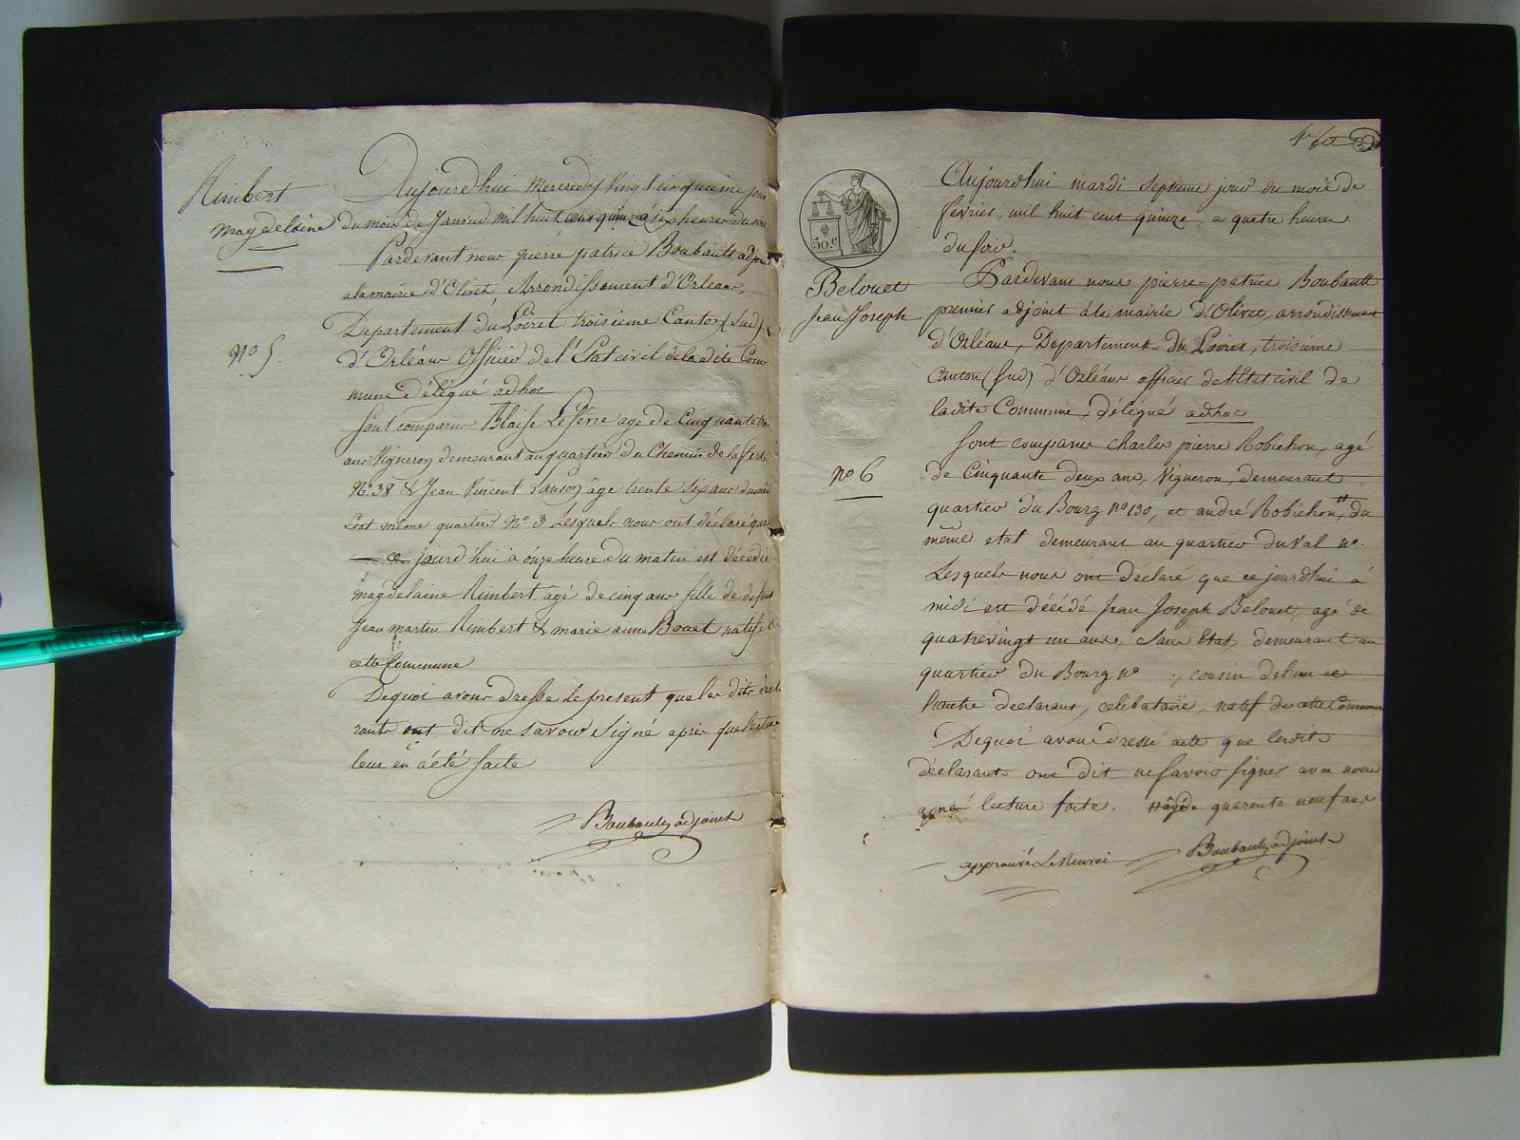 Rimbert
magdelaine
n° 5
Aujourd'hui mercredy vingt cinquieme jour
du mois de Janvier mil huit cent quinze six heures du soir
Pardevant nous pierre patrice Boubault adjoint
a la mairie d'Olivet Arrondissement d'Orleans,
Departement du Loiret troisieme Canton (Sud)
d'Orléans Officier de l'Etat civil de la dite Com
mune délégué adhoc
Sont comparus Blaise Lefevre agé de Cinquante
ans Vigneron demeurant au quartier du Chemin de la ferté
N° 38 & Jean Vincent âgé trente six ans du même
Etat même quartier N° 3 Lesquels nous ont déclaré que
ce jourd'hui à onze heure du matin est décedé
magdelaine Rimbert agé de cinq ans fille de defunt
Jean martin Rimbert & marie anne Bouet natif de
cette Commune
Dequoi avons dressé le present que les dits décla
rants ont dit ne savoir signé après que lecture
leur en a été faite
Boubault adjoint
50 c
Belouet
Jean Joseph
n° 6
Aujourdhui mardi septieme jour du mois de
fevrier, mil huit cent quinze a quatre heures
du soir.
Pardevant nous pierre-patrice Boubault
premier adjoint à la mairie d'Olivet, arrondissement
d'Orléans, Departement du Loiret, troisieme
Canton (Sud) d'Orléans officier de l'Etat civil de
ladite Commune, délégué adhoc
Sont comparus charles pierre Robichon, agé
de Cinquante deux ans, Vigneron, demeurant
quartier du Bourg n° 130, et andré Robichon, du
même etat demeurant au quartier du Val n°.
Lesquels nous ont déclaré que ce jourdhui à
midi est décédé Jean Joseph Belouet, agé de
quatrevingt un ans, Sans Etat, demeurant au
quartier du Bourg n° , cousin de l'un et
l'autre declarant, celibataire, natif de cette Commune
Dequoi avons dressé acte que lesdits
déclarants ont dit ne savoir signer avec nous
après lecture faite. agé de quarente neuf ans
approuvé Le Renvoi
Boubault adjoint